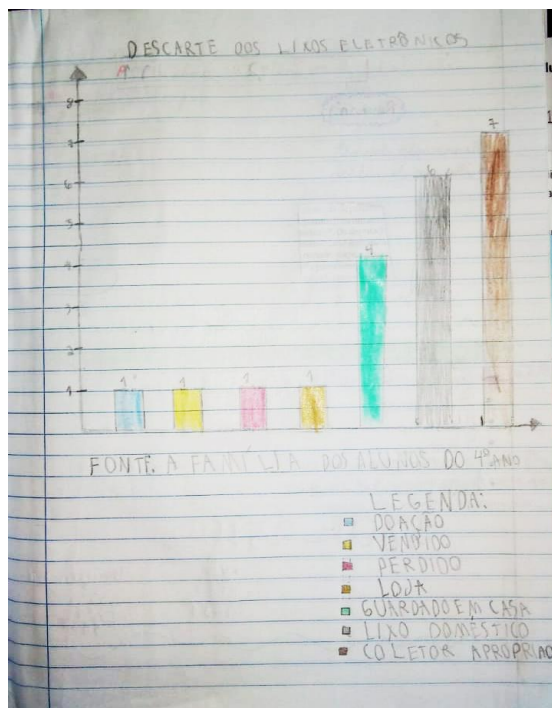 DESCARTE DOS LIXOS ELETRÔNICOS
8
7
7
6
6
5
4
4
3
2
1
1
1
1
1
FONTE. A FAMÍLIA DOS ALUNOS DO 4º ANO
LEGENDA:
DOAÇÃO
VENDIDO
PERDIDO
LOJA
GUARDADO EM CASA
LIXO DOMÉSTICO
COLETOR APROPRIAD